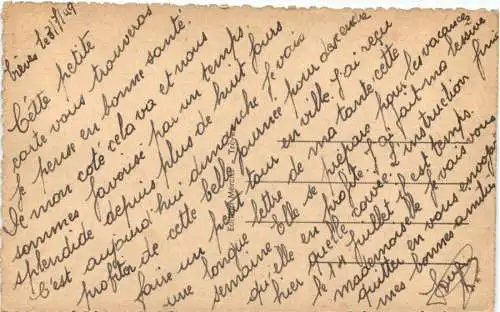 le 3/7/49
Cette petite
carte vous trouveras
je pense en bonne santé.
De mon coté cela va et nous
sommes favorisé par un temps
splendide depuis plus de huit jours
C'est aujourd'hui dimanche je vais
profiter de cette belle journée pour descendre
faire un petit tour en ville. J'ai reçu
une longue lettre de ma tante cette
semaine. Elle se prépare pour les vacances
qu'elle en profite. J'ai fait ma lessive
hier soirée. L'instruction
le 1er juillet. Il est temps.
mademoiselle je vais vous
quitter en vous envoyant
mes bonnes amitiés
Edition Mercier